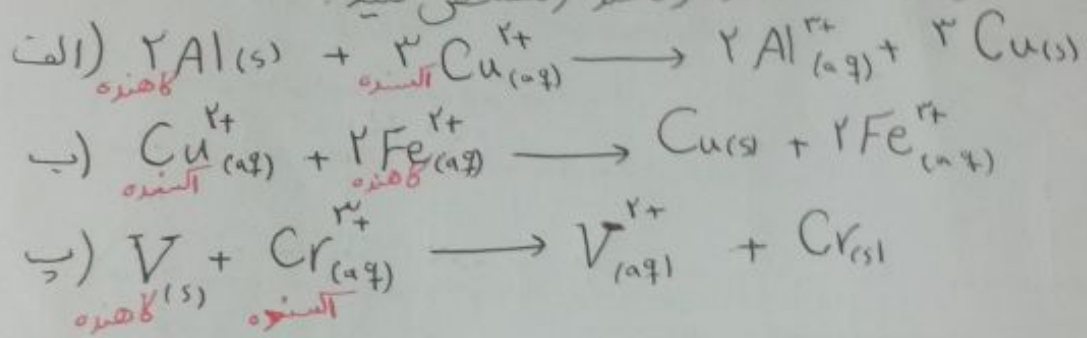 الف) ۲Al(s) + ۳Cu²⁺(aq) ⟶ ۲Al³⁺(aq) + ۳Cu(s)
کاهنده اکسنده
ب) Cu²⁺(aq) + ۲Fe²⁺(aq) ⟶ Cu(s) + ۲Fe³⁺(aq)
اکسنده کاهنده
پ) V(s) + Cr³⁺(aq) ⟶ V²⁺(aq) + Cr(s)
کاهنده اکسنده